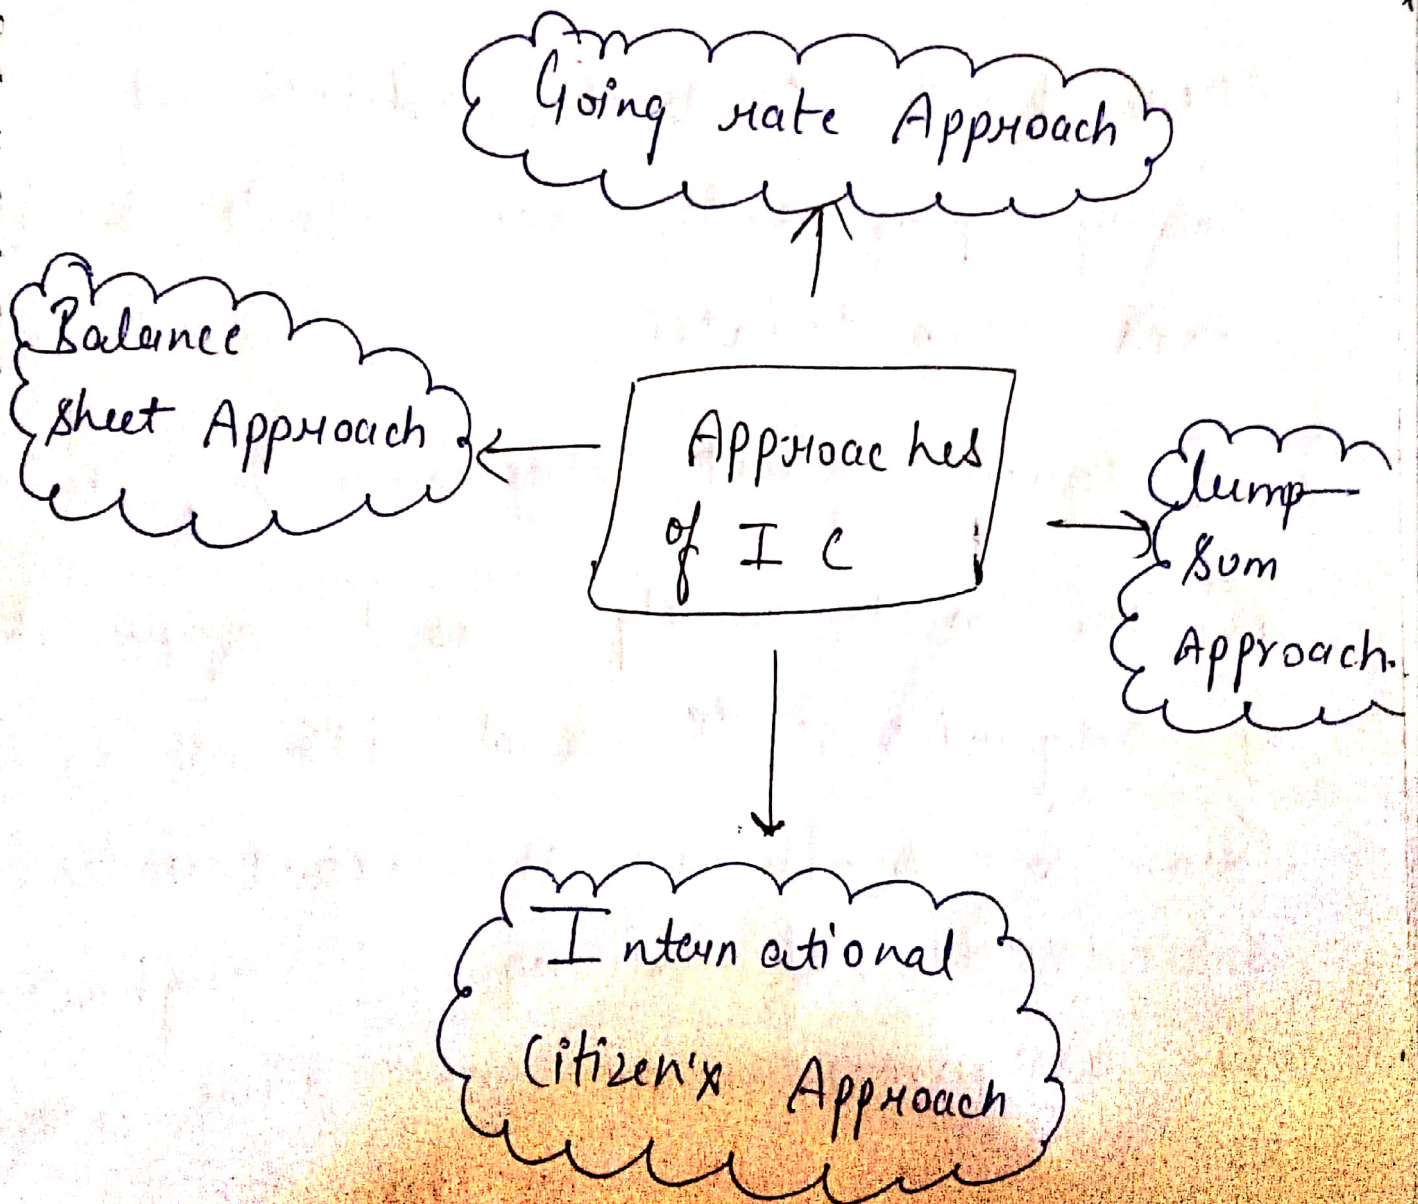 Going rate Approach
Balance
sheet Approach
Approaches
of I C
Lump
sum
Approach.
International
Citizen's Approach